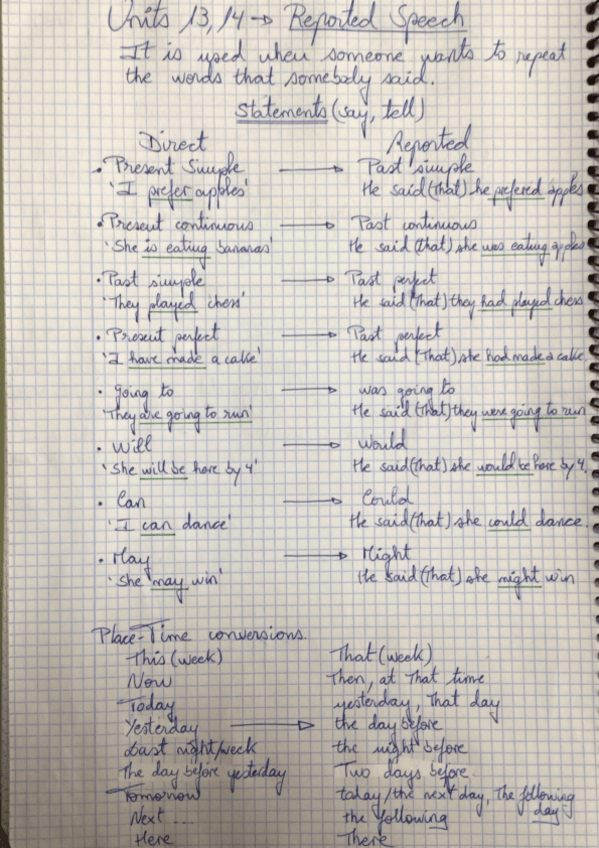 Units 13, 14 → Reported Speech
It is used when someone wants to repeat
the words that somebody said.
Statements (say, tell)
Direct Reported
• Present Simple → Past simple
'I prefer apples' He said (that) he prefered apples
• Present continuous → Past continuous
'She is eating bananas' He said (that) she was eating apples
• Past simple → Past perfect
'They played chess' He said (that) they had played chess
• Present perfect → Past perfect
'I have made a cake' He said (that) she had made a cake.
• Going to → was going to
'They are going to run' He said (that) they were going to run
• Will → would
'She will be here by 4' He said (that) she would be here by 4.
• Can → Could
'I can dance' He said (that) she could dance.
• May → Might
'She may win' He said (that) she might win
Place-Time conversions
This (week) That (week)
Now Then, at that time
Today yesterday, that day
Yesterday → the day before
Last night/week the night before
The day before yesterday Two days before
Tomorrow today/the next day, the following day
Next ... the following
Here There